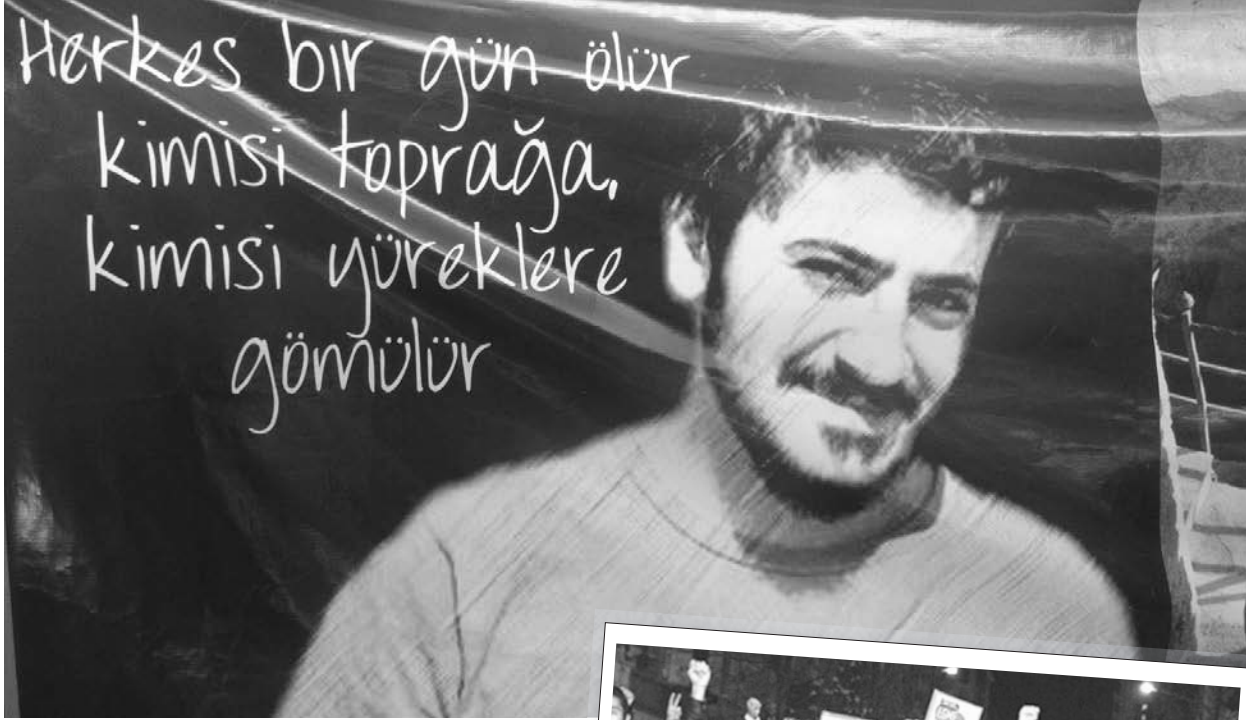 Herkes bır gün ölür
kimisi toprağa,
kimisi yüreklere
gömülür